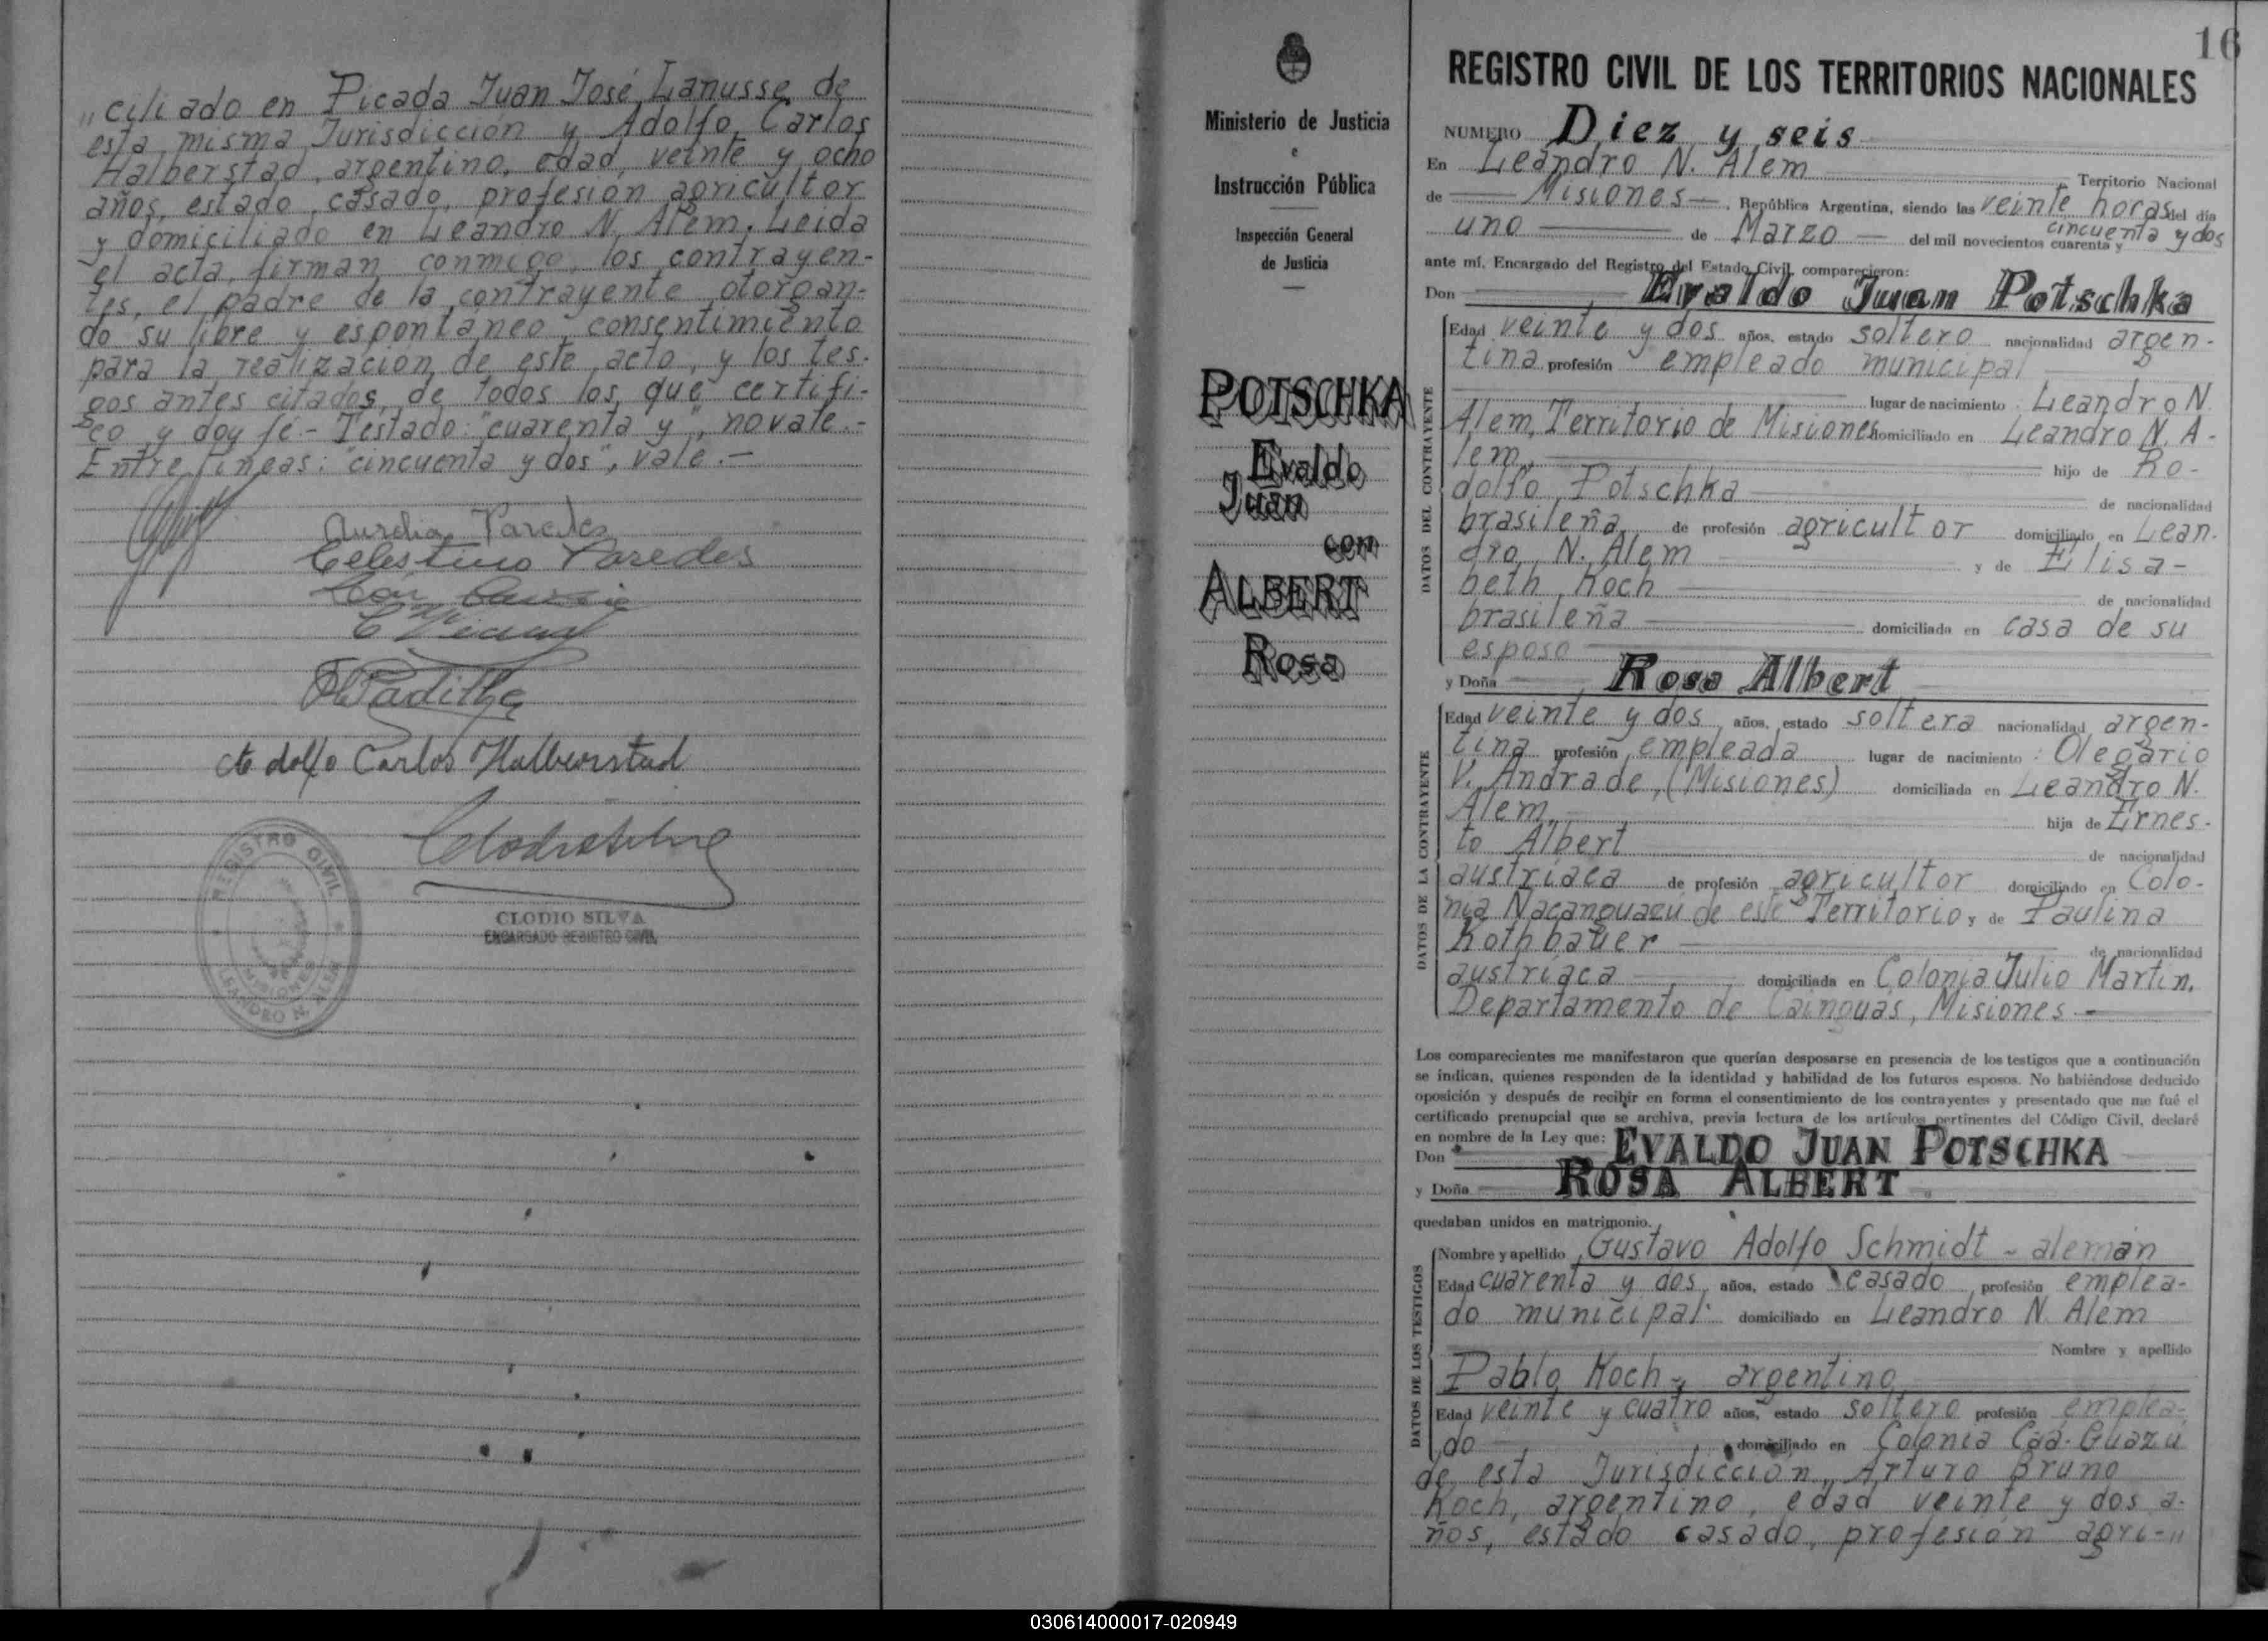 „ciliado en Picada Juan José Lanusse de
esta misma Jurisdicción y Adolfo Carlos
Halberstad, argentino, edad, veinte y ocho
años, estado, casado, profesión agricultor
y domiciliado en Leandro N. Alem. Leida
el acta, firman conmigo, los contrayen-
tes, el padre de la contrayente otorgan-
do su libre y espontaneo consentimiento
para la realización de este acto, y los tes-
gos antes citados, de todos los que certifi-
co y doy fé.- Testado: "cuarenta y", no vale.-
Entre lineas: "cincuenta y dos", vale.-
Aurelia Paredes
Celestino Paredes
Padilla
Adolfo Carlos Halberstad
Clodio Silva
CLODIO SILVA
ENCARGADO REGISTRO CIVIL
REGISTRO CIVIL
MISIONES
LEANDRO N. ALEM
Ministerio de Justicia
e
Instrucción Pública
Inspección General
de Justicia
POTSCHKA
Evaldo
Juan
con
ALBERT
Rosa
16
REGISTRO CIVIL DE LOS TERRITORIOS NACIONALES
NUMERO Diez y seis
En Leandro N. Alem Territorio Nacional
de Misiones, República Argentina, siendo las veinte horas del día
cincuenta y dos
uno de Marzo del mil novecientos cuarenta y
ante mí, Encargado del Registro del Estado Civil, comparecieron:
Don Evaldo Juan Potschka
DATOS DEL CONTRAYENTE
Edad veinte y dos años, estado soltero nacionalidad argen-
tina profesión empleado municipal
lugar de nacimiento: Leandro N.
Alem, Territorio de Misiones domiciliado en Leandro N. A-
lem, hijo de Ro-
dolfo Potschka de nacionalidad
brasileña de profesión agricultor domiciliado en Lean-
dro N. Alem y de Elisa-
beth Koch de nacionalidad
brasileña domiciliada en casa de su
esposo
y Doña Rosa Albert
DATOS DE LA CONTRAYENTE
Edad veinte y dos años, estado soltera nacionalidad argen-
tina profesión empleada lugar de nacimiento: Olegario
V. Andrade, (Misiones) domiciliada en Leandro N.
Alem, hija de Ernes-
to Albert de nacionalidad
austríaca de profesión agricultor domiciliado en Colo-
nia Ñacanguazu de este Territorio y de Paulina
Rothbauer de nacionalidad
austríaca domiciliada en Colonia Julio Martin,
Departamento de Cainguas, Misiones.-
Los comparecientes me manifestaron que querían desposarse en presencia de los testigos que a continuación
se indican, quienes responden de la identidad y habilidad de los futuros esposos. No habiéndose deducido
oposición y después de recibir en forma el consentimiento de los contrayentes y presentado que me fué el
certificado prenupcial que se archiva, previa lectura de los artículos pertinentes del Código Civil, declaré
en nombre de la Ley que:
Don EVALDO JUAN POTSCHKA
y Doña ROSA ALBERT
quedaban unidos en matrimonio.
DATOS DE LOS TESTIGOS
Nombre y apellido Gustavo Adolfo Schmidt - alemán
Edad cuarenta y dos años, estado casado profesión emplea-
do municipal domiciliado en Leandro N. Alem
Nombre y apellido
Pablo Koch - argentino
Edad veinte y cuatro años, estado soltero profesión emplea-
do domiciliado en Colonia Caá-Guazú
de esta Jurisdicción, Arturo Bruno
Koch, argentino, edad veinte y dos a-
ños, estado casado, profesión agri-„
030614000017-020949